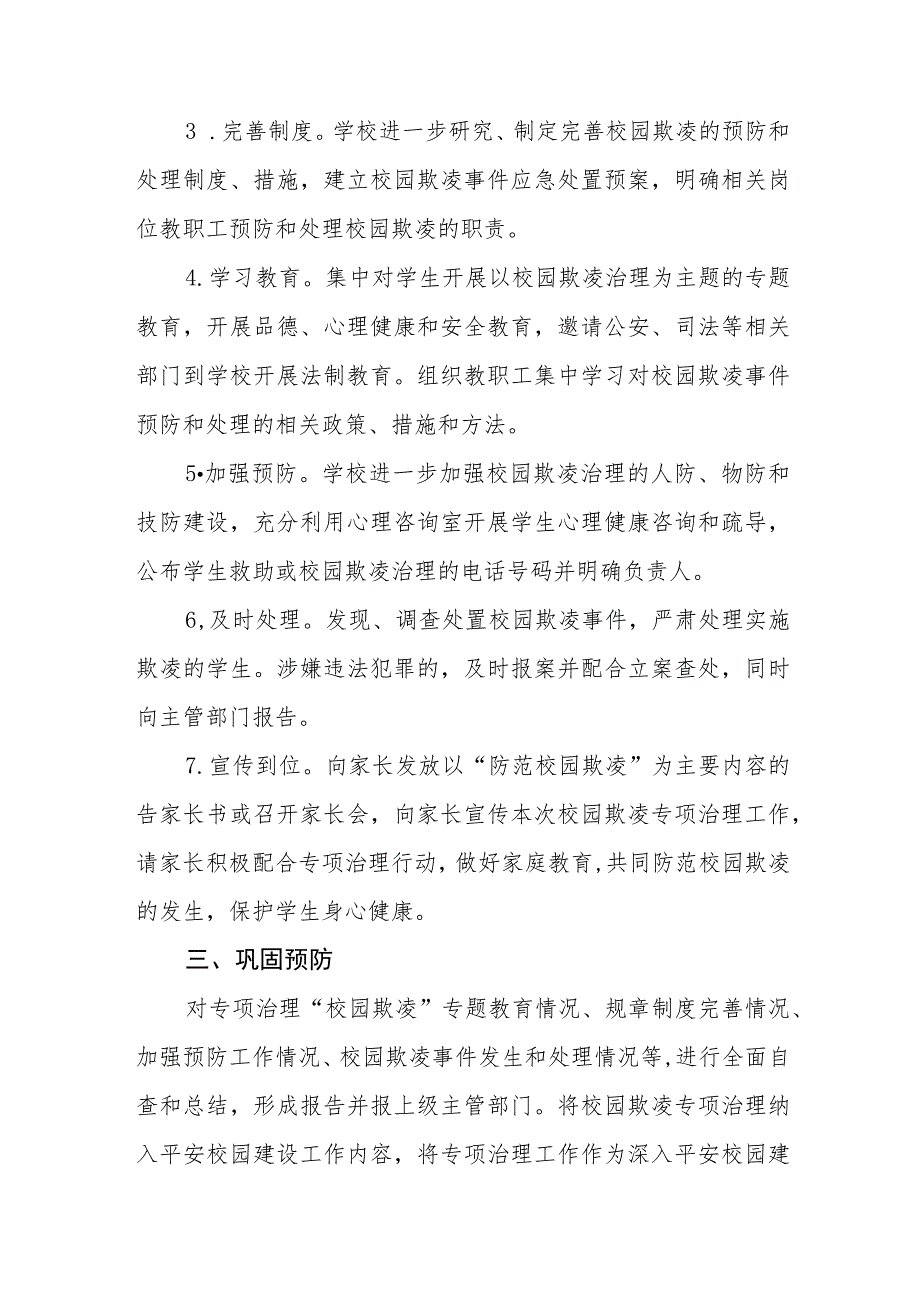 3 .完善制度。学校进一步研究、制定完善校园欺凌的预防和
处理制度、措施，建立校园欺凌事件应急处置预案，明确相关岗
位教职工预防和处理校园欺凌的职责。
4.学习教育。集中对学生开展以校园欺凌治理为主题的专题
教育，开展品德、心理健康和安全教育，邀请公安、司法等相关
部门到学校开展法制教育。组织教职工集中学习对校园欺凌事件
预防和处理的相关政策、措施和方法。
5•加强预防。学校进一步加强校园欺凌治理的人防、物防和
技防建设，充分利用心理咨询室开展学生心理健康咨询和疏导，
公布学生救助或校园欺凌治理的电话号码并明确负责人。
6,及时处理。发现、调查处置校园欺凌事件，严肃处理实施
欺凌的学生。涉嫌违法犯罪的，及时报案并配合立案查处，同时
向主管部门报告。
7.宣传到位。向家长发放以“防范校园欺凌”为主要内容的
告家长书或召开家长会，向家长宣传本次校园欺凌专项治理工作，
请家长积极配合专项治理行动，做好家庭教育,共同防范校园欺凌
的发生，保护学生身心健康。
三、巩固预防
对专项治理“校园欺凌”专题教育情况、规章制度完善情况、
加强预防工作情况、校园欺凌事件发生和处理情况等,进行全面自
查和总结，形成报告并报上级主管部门。将校园欺凌专项治理纳
入平安校园建设工作内容，将专项治理工作作为深入平安校园建